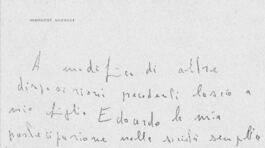 A modifica di altre
disposizioni precedenti lascio a
mio figlio Edoardo la mia
partecipazione nella società semplice